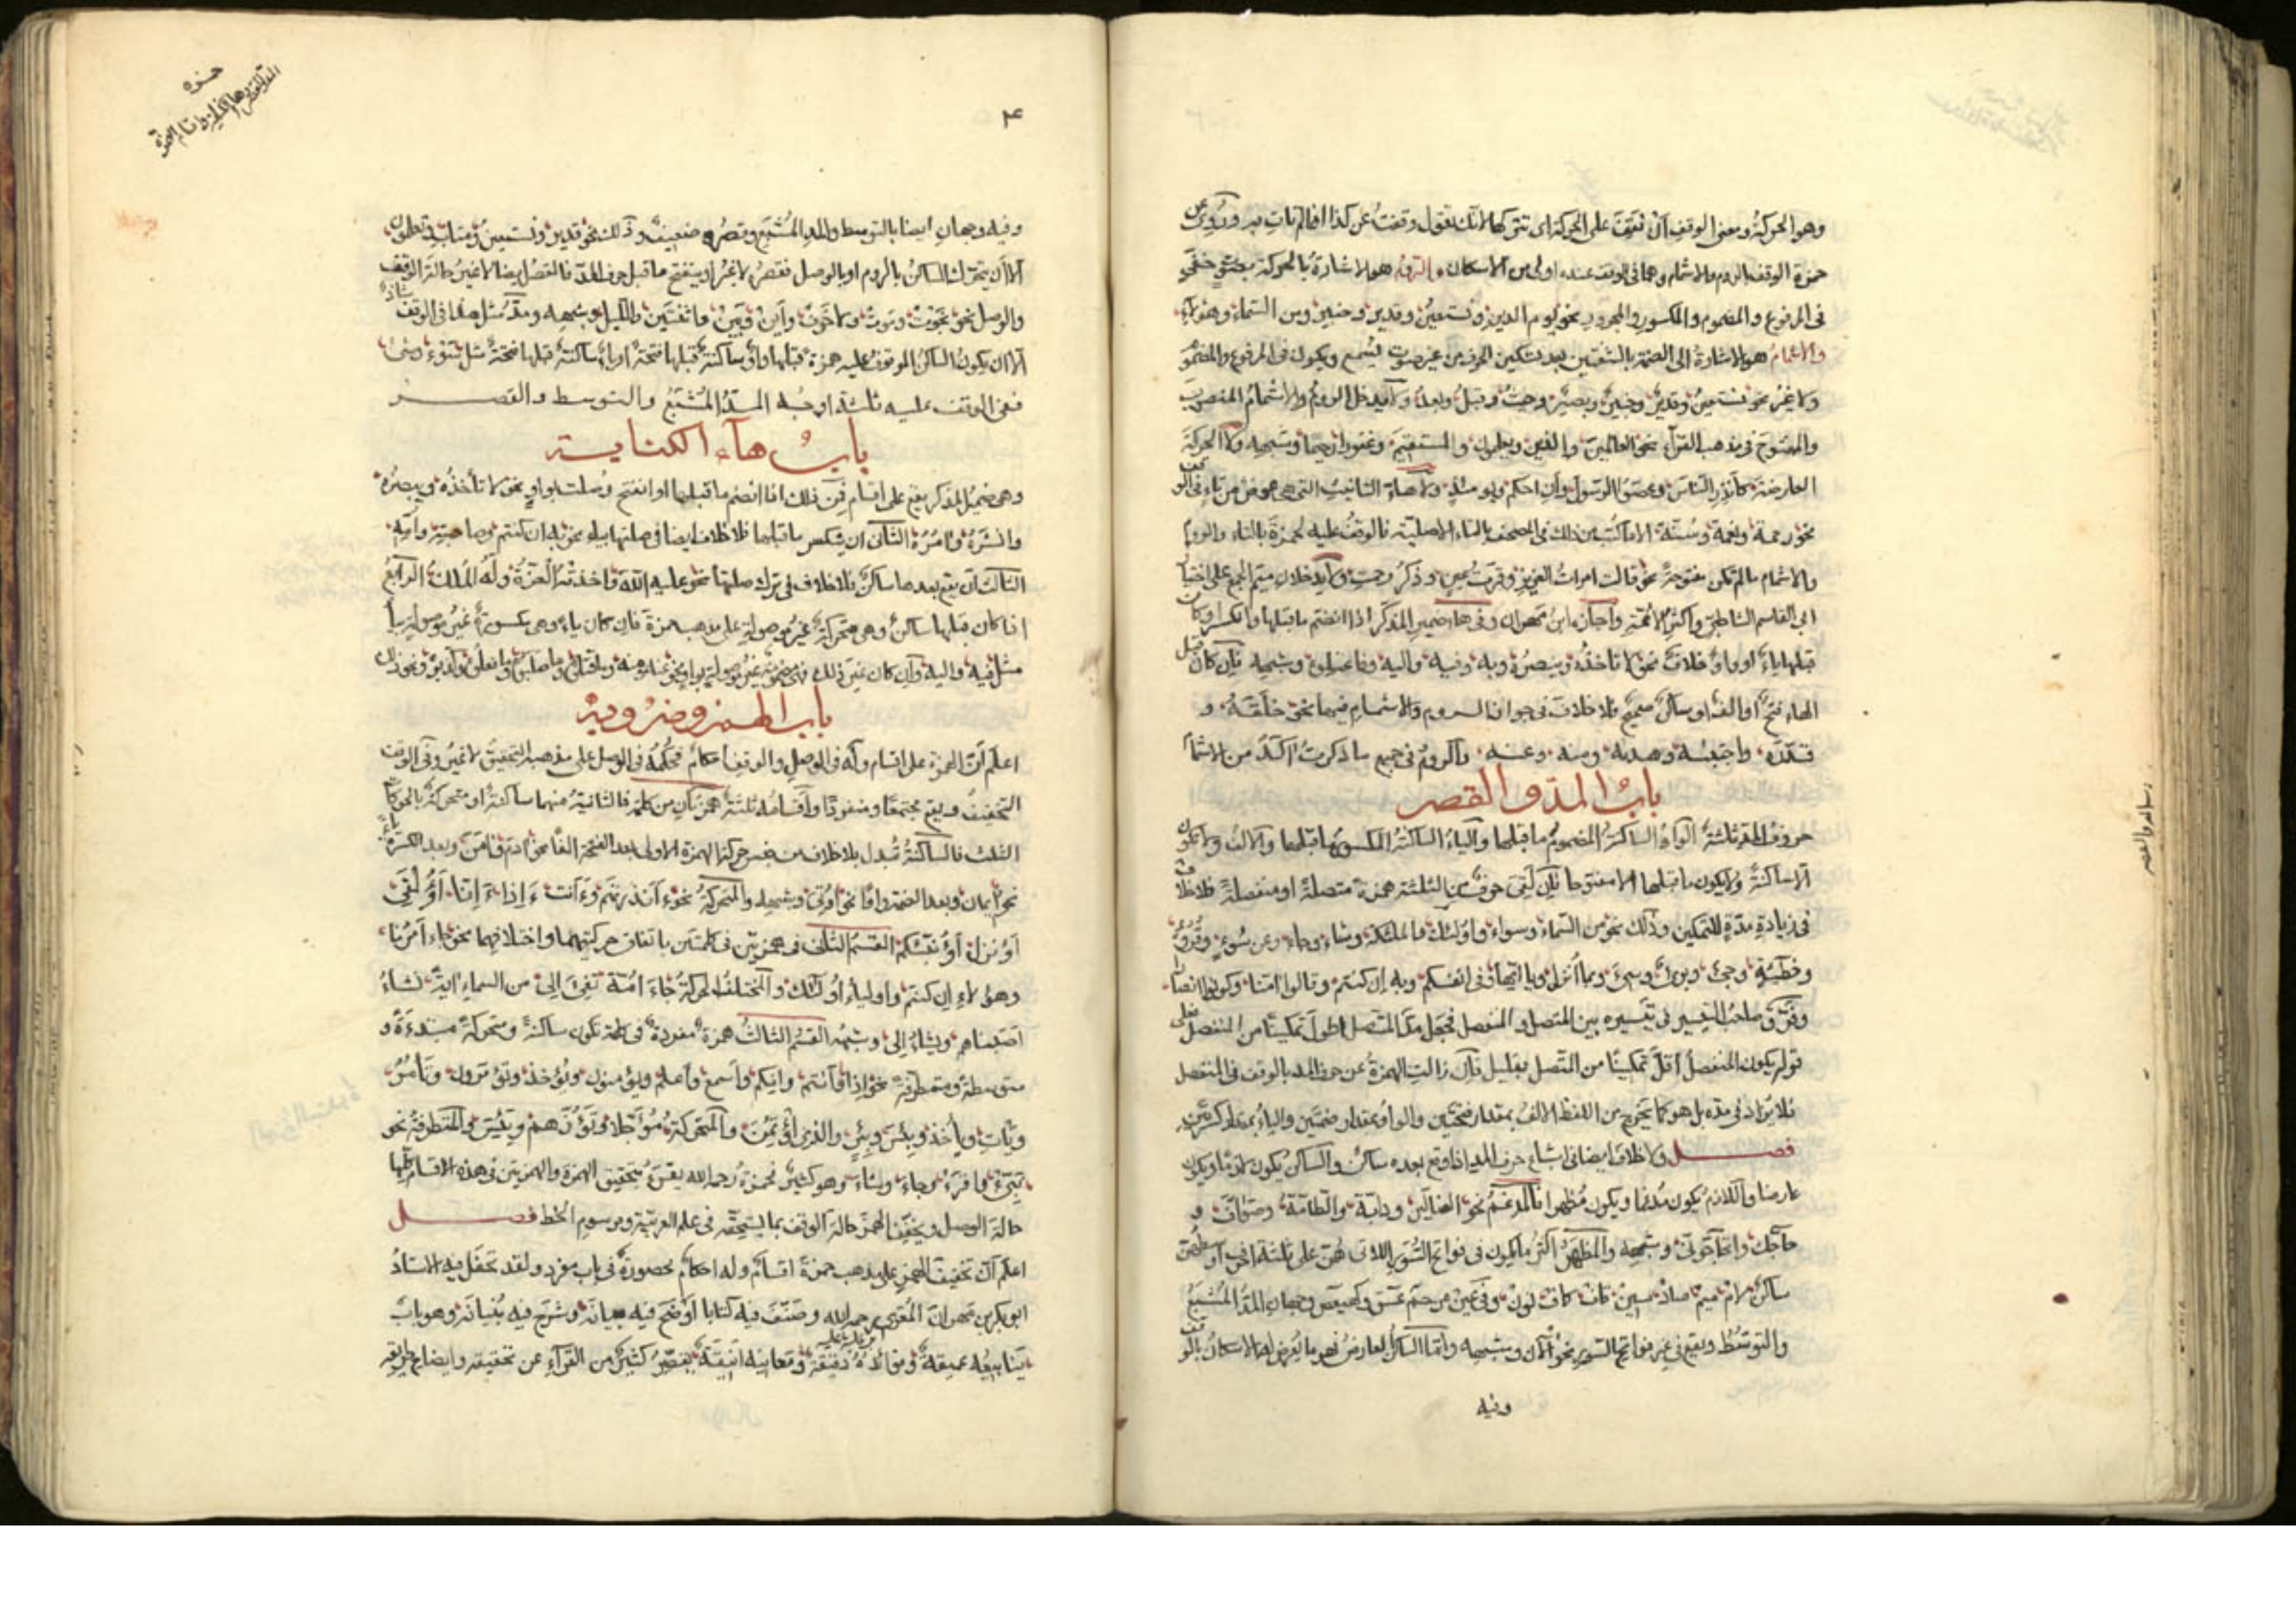 وهو الحركة ومعنى الوقف ان تقف على الحركة اى تتركها لانك تقول وقفت عن كذا اذا لم تات به وروى عن
حمزة الوقف بالروم والاشمام وهما فى الوقف عنده اولى من الاسكان الروم هو الاشارة بالحركة بصوت خفى
فى المرفوع والمضموم والمكسور والمجرور نحو يوم الدين ونستعين وقدير وخبير ومن السماء وهؤلاء
والاشمام هو الاشارة الى الضمة بالشفتين بعد تسكين الحرف من غير صوت يسمع ويكون فى المرفوع والمضموم
ولا غير نحو نستعين وقدير وخبير وبصير وحيث وقبل وبعد ولا يدخل الروم والاشمام المنصوب
والمفتوح فى مذهب القراء نحو العالمين والذين ويعلمون والمستقيم وغفورا رحيما وشبهه ولا الحركة
العارضة كانذر الناس وعصوا الرسول وان احكم ويومئذ ولا هاء التانيث التى هى عوض من تاء فى الوقف
نحو رحمة ونعمة وسنة الا ما كتب من ذلك فى المصحف بالتاء الاصلية فالوقف عليه لحمزة بالتاء والروم
والاشمام ما لم تكن مفتوحة نحو قالت امرات العزيز وقرت عين وذكر رحمت ولا يدخلان ميم الجمع على اختيار
ابى القاسم الشاطبى واكثر الائمة واجازه ابن مهران وفى هاء ضمير المذكر اذا انضم ما قبلها وانكسر او كان
قبلها ياء او واو خلاف نحو لا تاخذه وينصره وبه وفيه واليه وشبهه فان كان قبل
الهاء فتح او الف او ساكن صحيح فلا خلاف فى جواز الروم والاشمام فيها نحو خلقه و
قدره واجتبيه وهديه ومنه وعنه والروم فى جميع ما ذكرت آكد من الاشمام
باب المد والقصر
حروف المد ثلثة الواو الساكنة المضموم ما قبلها والياء الساكنة المكسور ما قبلها والالف ولا تكون
الا ساكنة ولا يكون ما قبلها الا مفتوحا فان لقى حرف من الثلثة همزة متصلة او منفصلة فلا خلاف
فى زيادة مدة للتمكين وذلك نحو من السماء وسواء واولئك والملئكة وشاء وجاء وعن سوء وقروء
وخطيئة وجئ وبرئ وسئ وبما انزل ويا ايها وفى انفسكم وبه ان كنتم وقالوا امنا وكونوا انصار
وفرق صاحب التيسير فى تيسيره بين المتصل والمنفصل فجعل مد المتصل اطول تمكينا من المنفصل فعلى
قوله يكون المنفصل اقل تمكينا من المتصل بقليل فان زالت الهمزة عن حرف المد بالوقف فى المنفصل
فلا يزاد فى مده بل هو كما يخرج من اللفظ الالف بمقدار فتحتين والواو بمقدار ضمتين والياء بمقدار كسرتين
فصل ولا خلاف ايضا فى اشباع حرف المد اذا وقع بعده ساكن والساكن يكون لازما ويكون
عارضا واللازم يكون مدغما ويكون مظهرا فالمدغم نحو الضالين ودابة والطامة وصواف و
حاجك واتحاجونى وشبهه والمظهر اكثر ما يكون فى فواتح السور اللاتى هن على ثلثة احرف اوسطهن
ساكن لام ميم صاد سين قاف كاف نون وفى عين من حم عسق وكهيعص وجهان المد المشبع
والتوسط ويقع فى غير فواتح السور نحو الآن وشبهه واما الساكن العارض فهو ما يعرض له الاسكان بالوقف
وفيه
رساله والقصر
۴
حمزه
وفيه وجهان ايضا بالتوسط والمد المشبع وقصره ضعيف وذلك نحو قدير ونستعين ومتاب وتعلمون
الا ان يتحرك الساكن بالروم او بالوصل فقصر لا غير او ينفتح ما قبل حرف المد فالقصر ايضا لا غير حالة الوقف
والوصل نحو نجوت وموت ولا خوف واين وبين والليل وشبهه ومد مثل هذا فى الوقف شاذ
الا ان يكون الساكن الموقوف عليه همزة قبلها واو ساكنة قبلها فتحة او ياء ساكنة قبلها فتحة مثل سوء وشئ
ففى الوقف عليه ثلثة اوجه المد المشبع والتوسط والقصر
باب هاء الكناية
وهى ضمير المذكر يقع على اقسام فمن ذلك اذا انضم ما قبلها او انفتح وصلت بواو نحو لا تأخذه وينصره
وانشره وامره الثانى ان ينكسر ما قبلها فلا خلاف ايضا فى صلتها بياء نحو به ان كنتم وصاحبته وامه
الثالث ان يقع بعدها ساكن فلا خلاف فى ترك صلتها نحو عليه الله واخذته العزة وله الملك الرابع
اذا كان قبلها ساكن وهى متحركة غير موصولة على مذهب حمزة فان كان ياء وهى مكسورة غير موصولة بياء
مثل فيه واليه وان كان غير ذلك فهى مضمومة غير موصولة بواو نحو عنه ومنه وما قتلوه وما صلبوه
باب الهمز وضروبه
اعلم ان الهمزة على اقسام وله فى الوصل والوقف احكام فحكمه فى الوصل على مذهبه التحقيق لا غير وفى الوقف
التخفيف ويقع مجتمعا ومنفردا واقسامه ثلثة همزتان من كلمة فالثانية منهما ساكنة او متحركة بالحركات
الثلث فالساكنة تبدل بلا خلاف من جنس حركة الهمزة الاولى بعد الفتحة الفا نحو ادم وامن وبعد الكسرة ياء
نحو ايمان وبعد الضمة واوا نحو اوتى وشبهه والمتحركة نحو ءانذرتهم وءانت ءاذا ءانا اؤلقى
اؤنزل اؤنبئكم القسم الثانى فى همزتين فى كلمتين باتفاق حركتيهما واختلافهما نحو جاء امرنا
وهؤلاء ان كنتم واولياء اولئك والمختلف الحركة جاء امة تفئ الى من السماء اية نشاء
اصبناهم ويشاء الى وشبهه القسم الثالث همزة مفردة فى كلمة تكون ساكنة ومتحركة مبتدءة و
متوسطة ومتطرفة نحو اذا وانتم وايكم واسمع واعلم ويؤمنون ويؤخذ وتؤثرون وتأمر
ويأت ويأخذ وبئس وبئر والذى اؤتمن والمتحركة مؤجلا وتؤزهم ويئس والمتطرفة نحو
تبرئ واقرء وجاء وشاء وهو كثير فحمزة رحمه الله يقرء بتحقيق الهمزة والهمزتين فى هذه الاقسام كلها
حالة الوصل ويخفف الهمز حالة الوقف بما يستحقه فى علم العربية ومرسوم الخط فصل
اعلم ان تخفيف الهمز على مذهب حمزة اقسام وله احكام محصورة فى باب مفرد ولقد تحفل فيه الاستاذ
ابو بكر بن مهران المقرى رحمه الله وصنف فيه كتابا اوضح فيه بيانه وشرح فيه بنيانه وهو باب
ينابيعه عميقة وفوائده دقيقة ومعانيه انيقة يقصر كثير من القراء عن تحقيقه وايضاح طريقه